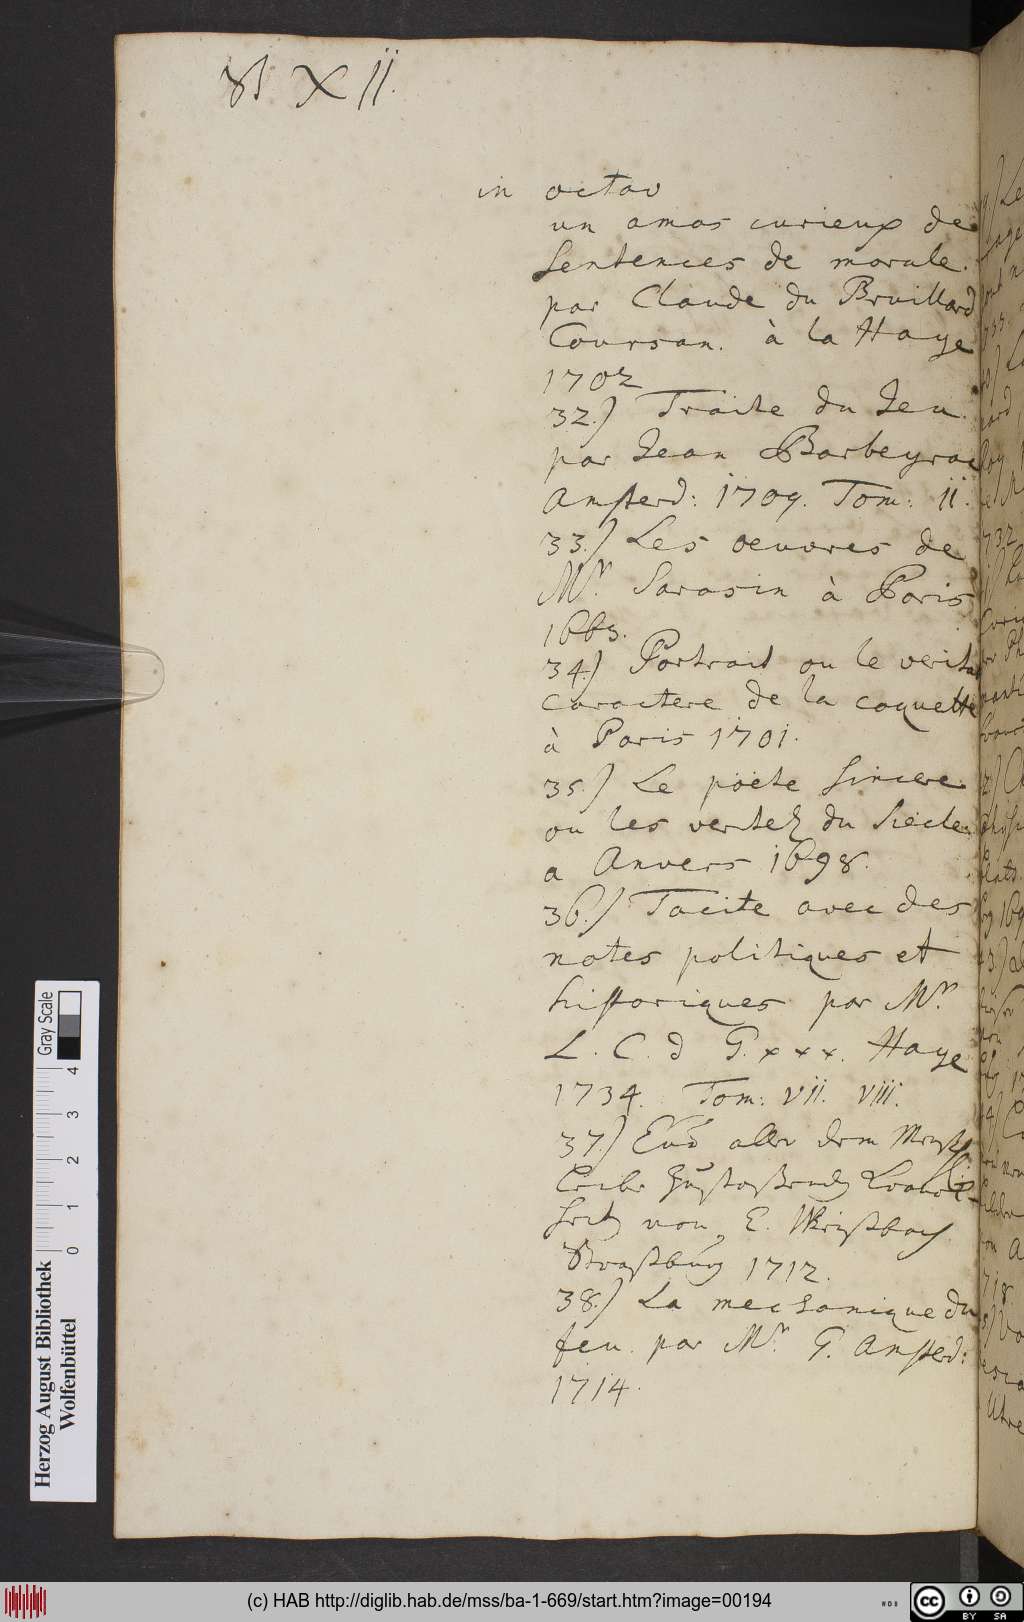 X II.
in octav
un amas curieux de
Sentences de morale.
par Claude du Bruillard
Coursan. à la Haye
1702
32.) Traite du Jeu.
par Jean Barbeyrac
Amsterd: 1709. Tom: II.
33.) Les oeuvres de
Mr. Sarasin à Paris
1663.
34.) Portrait ou le verita
caractere de la coquette
à Paris 1701.
35.) Le poëte sincere
ou les veritez du Siecle
a Anvers 1698.
36.) Tacite avec des
notes politiques et
historiques par Mr.
L. C. d G. xxx. Haye
1734. Tom: VII. VIII.
37.) aller dem
von E.
Straßburg 1712.
38.) La mechanique du
feu. par Mr. G. Amsterd:
1714.
Gray Scale
0 1 2 3 4
Herzog August Bibliothek
Wolfenbüttel
(c) HAB http://diglib.hab.de/mss/ba-1-669/start.htm?image=00194
WDB
cc
BY SA